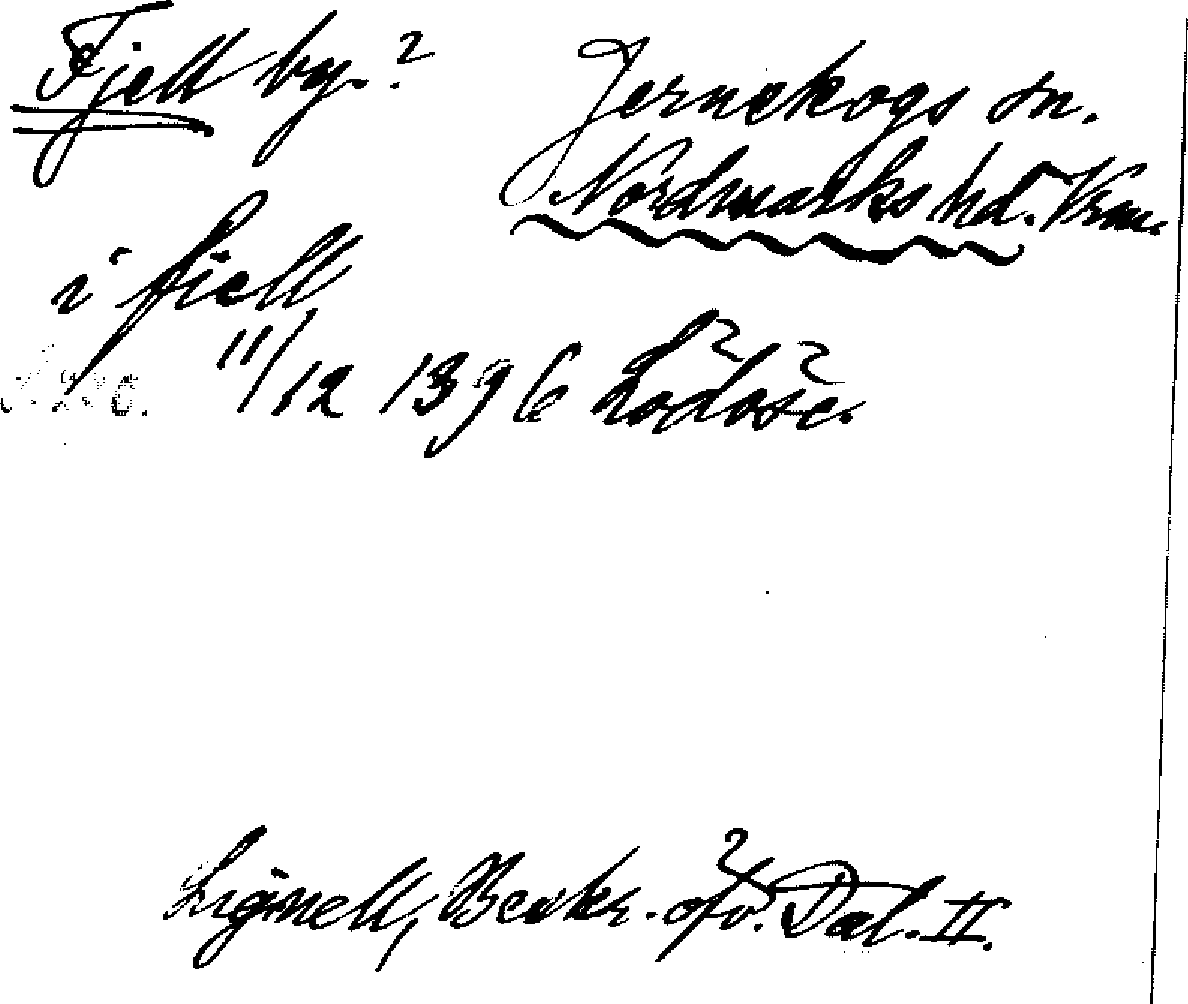 Fjell by.?
Jernskogs sn.
Nordmarks hd. Vrm.
i fiell
11/12 1396 Lödöse.
Lignell, Beskr. öfv. Dal. II.